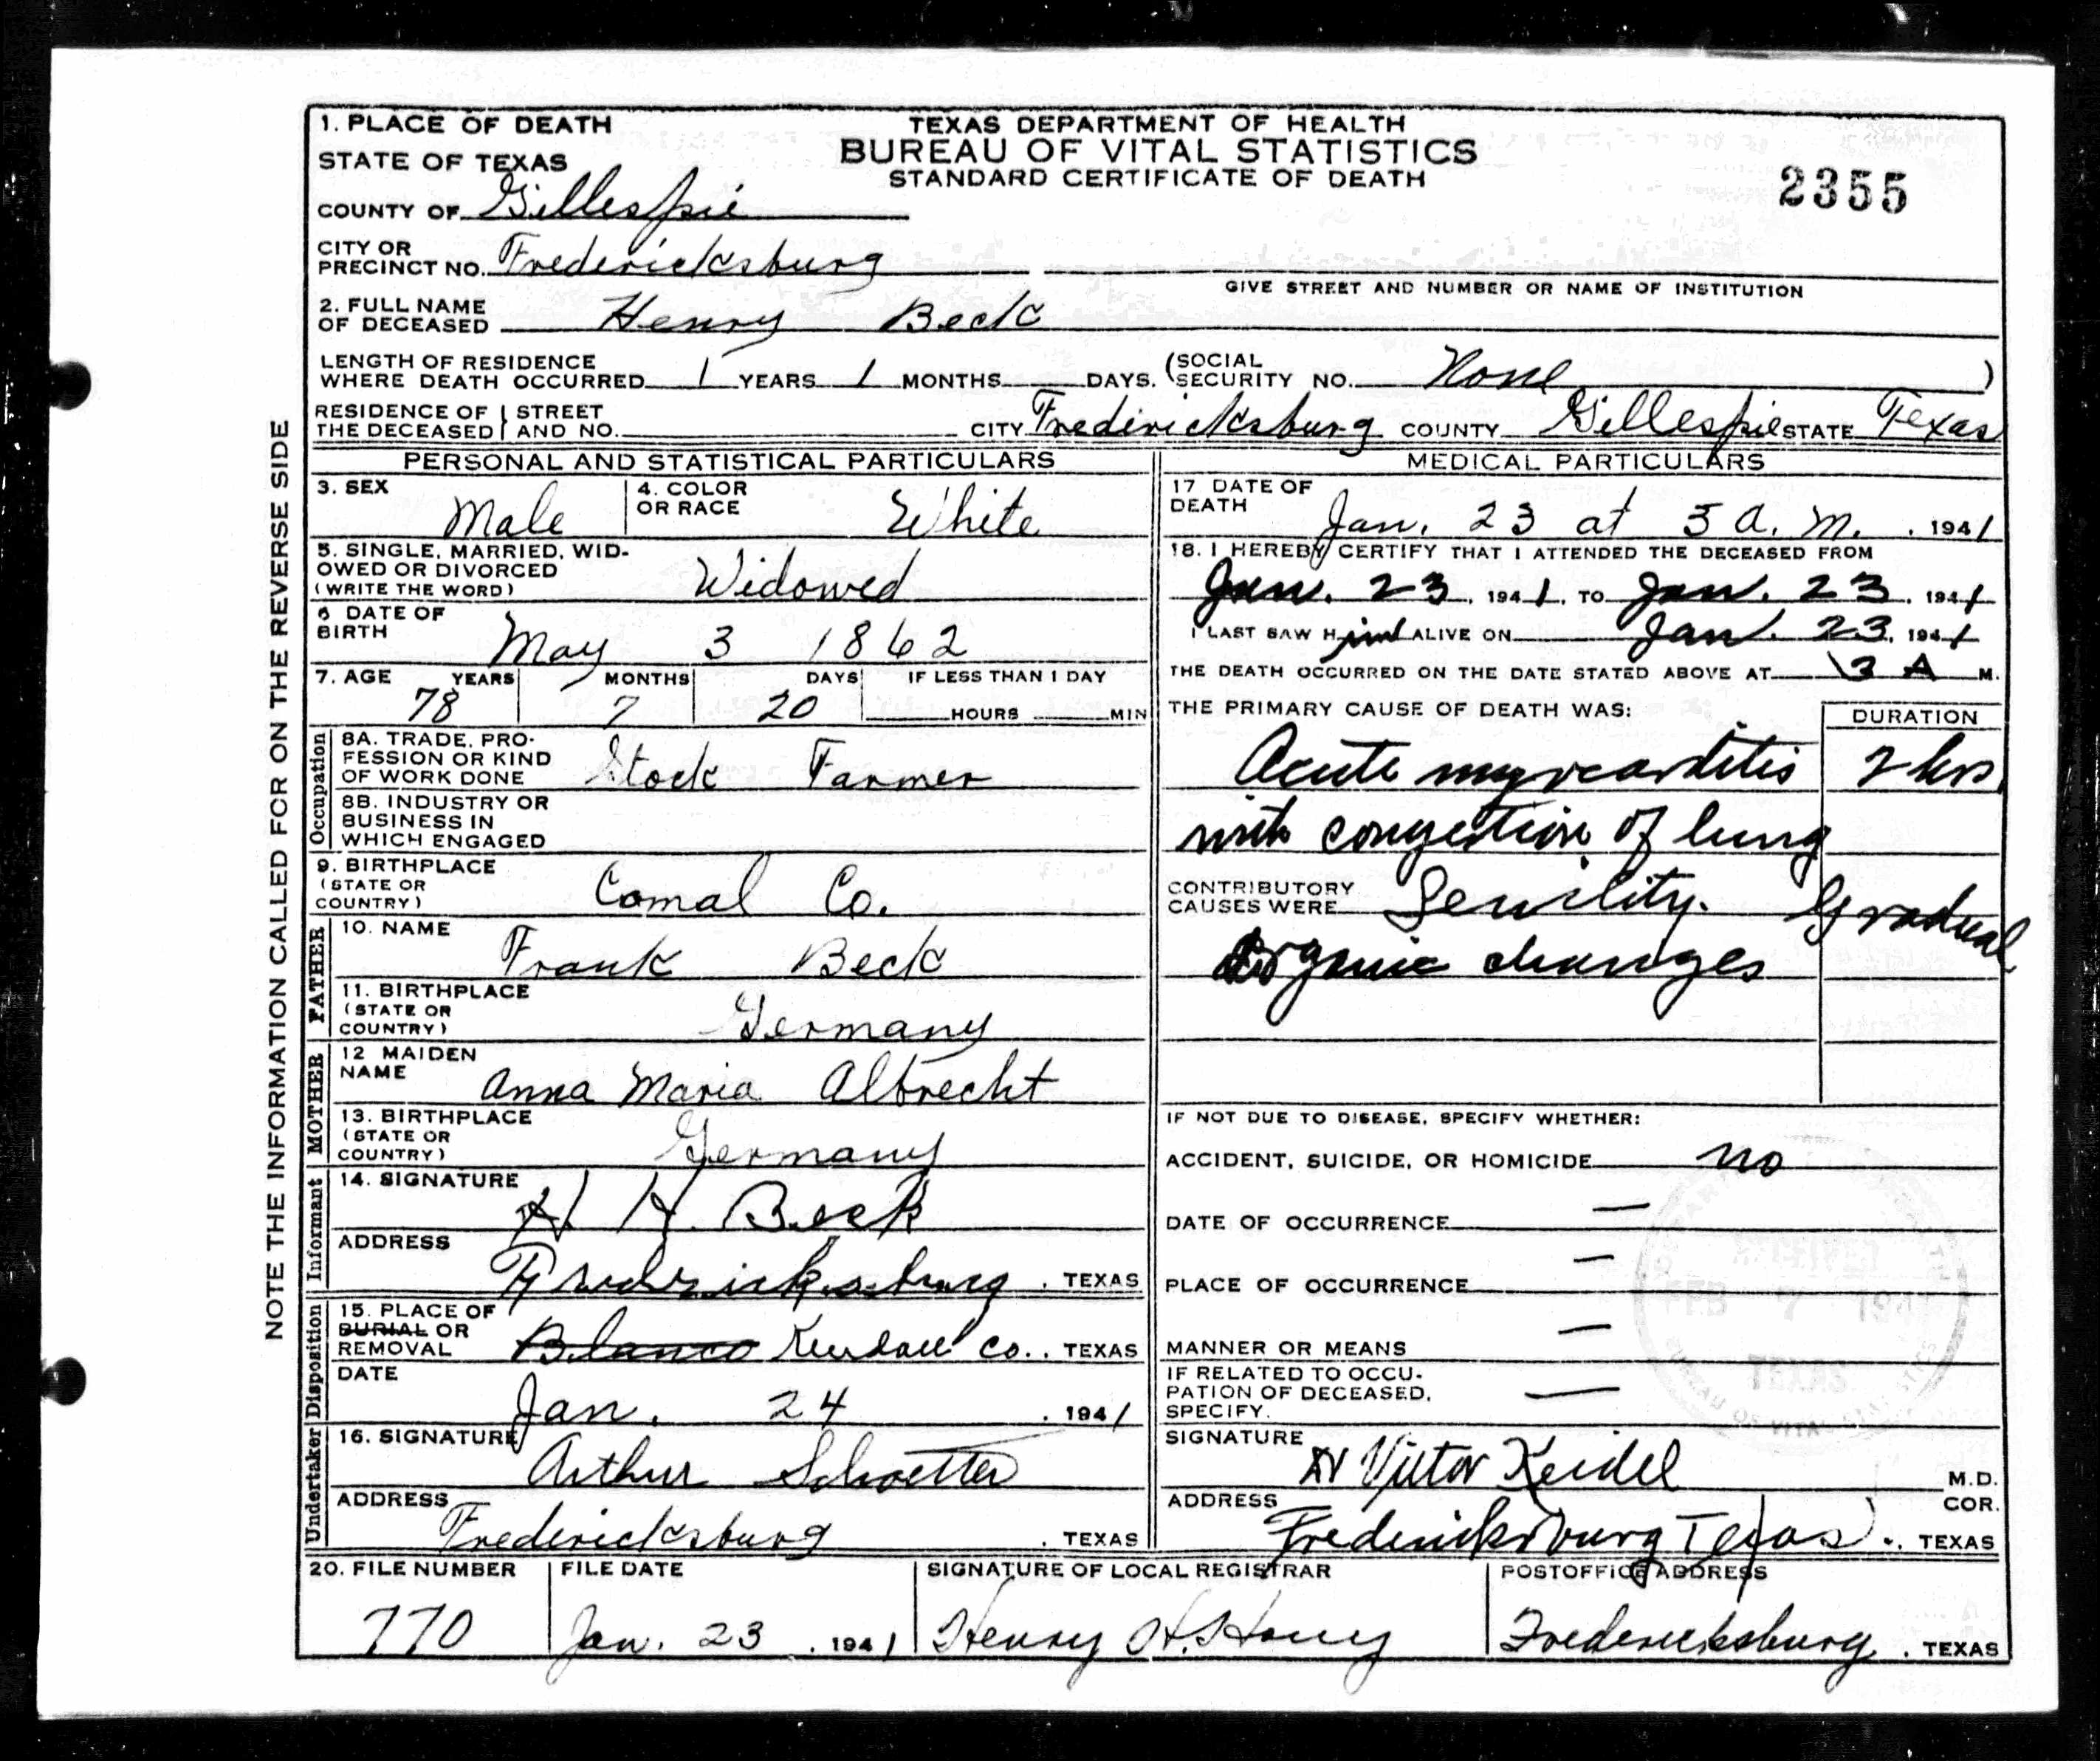 1. PLACE OF DEATH
STATE OF TEXAS
COUNTY OF Gillespie
TEXAS DEPARTMENT OF HEALTH
BUREAU OF VITAL STATISTICS
STANDARD CERTIFICATE OF DEATH
2355
CITY OR
PRECINCT NO. Fredericksburg
GIVE STREET AND NUMBER OR NAME OF INSTITUTION
2. FULL NAME
OF DECEASED Henry Beck
LENGTH OF RESIDENCE
WHERE DEATH OCCURRED 1 YEARS 1 MONTHS DAYS. (SOCIAL SECURITY NO. None )
RESIDENCE OF THE DECEASED STREET AND NO. CITY Fredericksburg COUNTY Gillespie STATE Texas
NOTE THE INFORMATION CALLED FOR ON THE REVERSE SIDE
PERSONAL AND STATISTICAL PARTICULARS
3. SEX Male
4. COLOR OR RACE White
5. SINGLE, MARRIED, WID-
OWED OR DIVORCED
(WRITE THE WORD) Widowed
6 DATE OF
BIRTH May 3 1862
7. AGE YEARS MONTHS DAYS IF LESS THAN 1 DAY
78 7 20 HOURS MIN
Occupation
8A. TRADE, PRO-
FESSION OR KIND
OF WORK DONE Stock Farmer
8B. INDUSTRY OR
BUSINESS IN
WHICH ENGAGED
9. BIRTHPLACE
(STATE OR
COUNTRY) Comal Co.
FATHER
10. NAME Frank Beck
11. BIRTHPLACE
(STATE OR
COUNTRY) Germany
MOTHER
12 MAIDEN
NAME Anna Maria Albrecht
13. BIRTHPLACE
(STATE OR
COUNTRY) Germany
Informant
14. SIGNATURE H. H. Beck
ADDRESS Fredericksburg, TEXAS
Disposition
15. PLACE OF
BURIAL OR
REMOVAL Blanco Kendall Co., TEXAS
DATE Jan. 24, 1941
Undertaker
16. SIGNATURE Arthur Schaetter
ADDRESS Fredericksburg, TEXAS
MEDICAL PARTICULARS
17 DATE OF
DEATH Jan. 23 at 3 a.m., 1941
18. I HEREBY CERTIFY THAT I ATTENDED THE DECEASED FROM
Jan. 23, 1941, TO Jan. 23, 1941
I LAST SAW Him ALIVE ON Jan. 23, 1941
THE DEATH OCCURRED ON THE DATE STATED ABOVE AT 3 A M.
THE PRIMARY CAUSE OF DEATH WAS: DURATION
Acute myocarditis 2 hrs
with congestion of lung
CONTRIBUTORY
CAUSES WERE Senility. Gradual
organic changes
IF NOT DUE TO DISEASE, SPECIFY WHETHER:
ACCIDENT, SUICIDE, OR HOMICIDE no
DATE OF OCCURRENCE —
PLACE OF OCCURRENCE —
MANNER OR MEANS —
IF RELATED TO OCCU-
PATION OF DECEASED,
SPECIFY. —
FEB 7 1941
TEXAS
SIGNATURE Victor Keidel M.D.
COR.
ADDRESS Fredericksburg Texas, TEXAS
20. FILE NUMBER 770
FILE DATE Jan. 23, 1941
SIGNATURE OF LOCAL REGISTRAR Henry H.
POSTOFFICE ADDRESS Fredericksburg, TEXAS